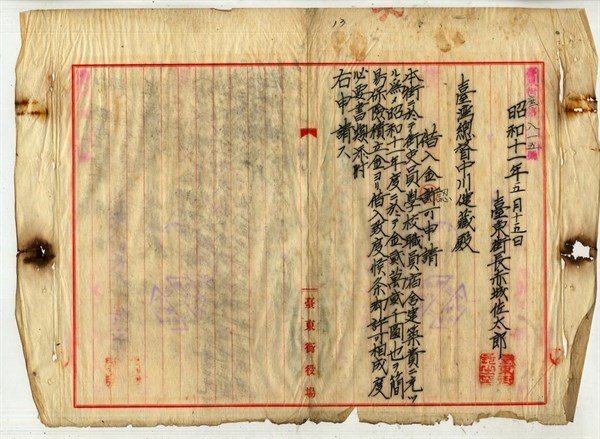 13
昭和十一年五月十五日
臺東街長赤城佐太郎
臺灣總督中川健藏殿
借入金認可申請
本街ニ於テ街吏員學校職員宿舍建築費ニ充ツ
ル為メ昭和十一年度ニ於テ金貳萬貳千圓也ヲ簡
易保險積立金ヨリ借入致度候条御許可相成度
必要書類添附
右申請ス
臺東街役場